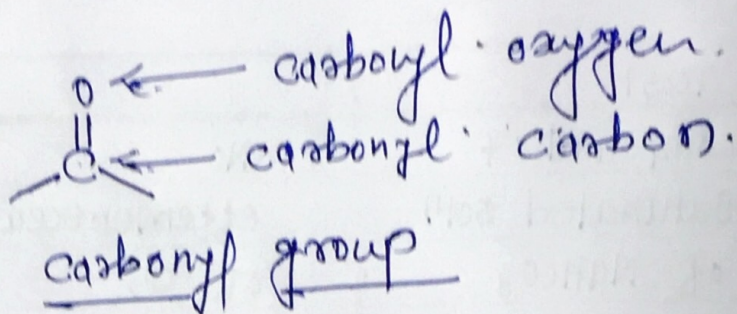 O ← carbonyl oxygen.
C ← carbonyl carbon.
carbonyl group